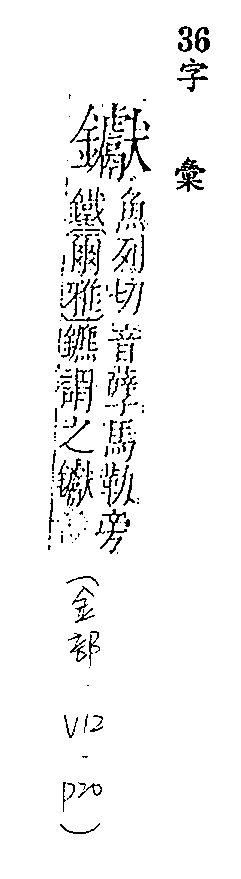 36
字彙
钀魚列切音孽馬勒旁
鐵爾雅鑣謂之钀
(金部·V12-P20)